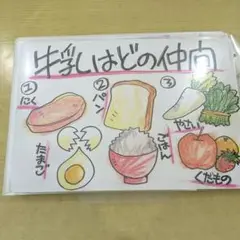 牛乳はどの仲間
①
にく
②
パン
③
やさい
たまご
ごはん
くだもの